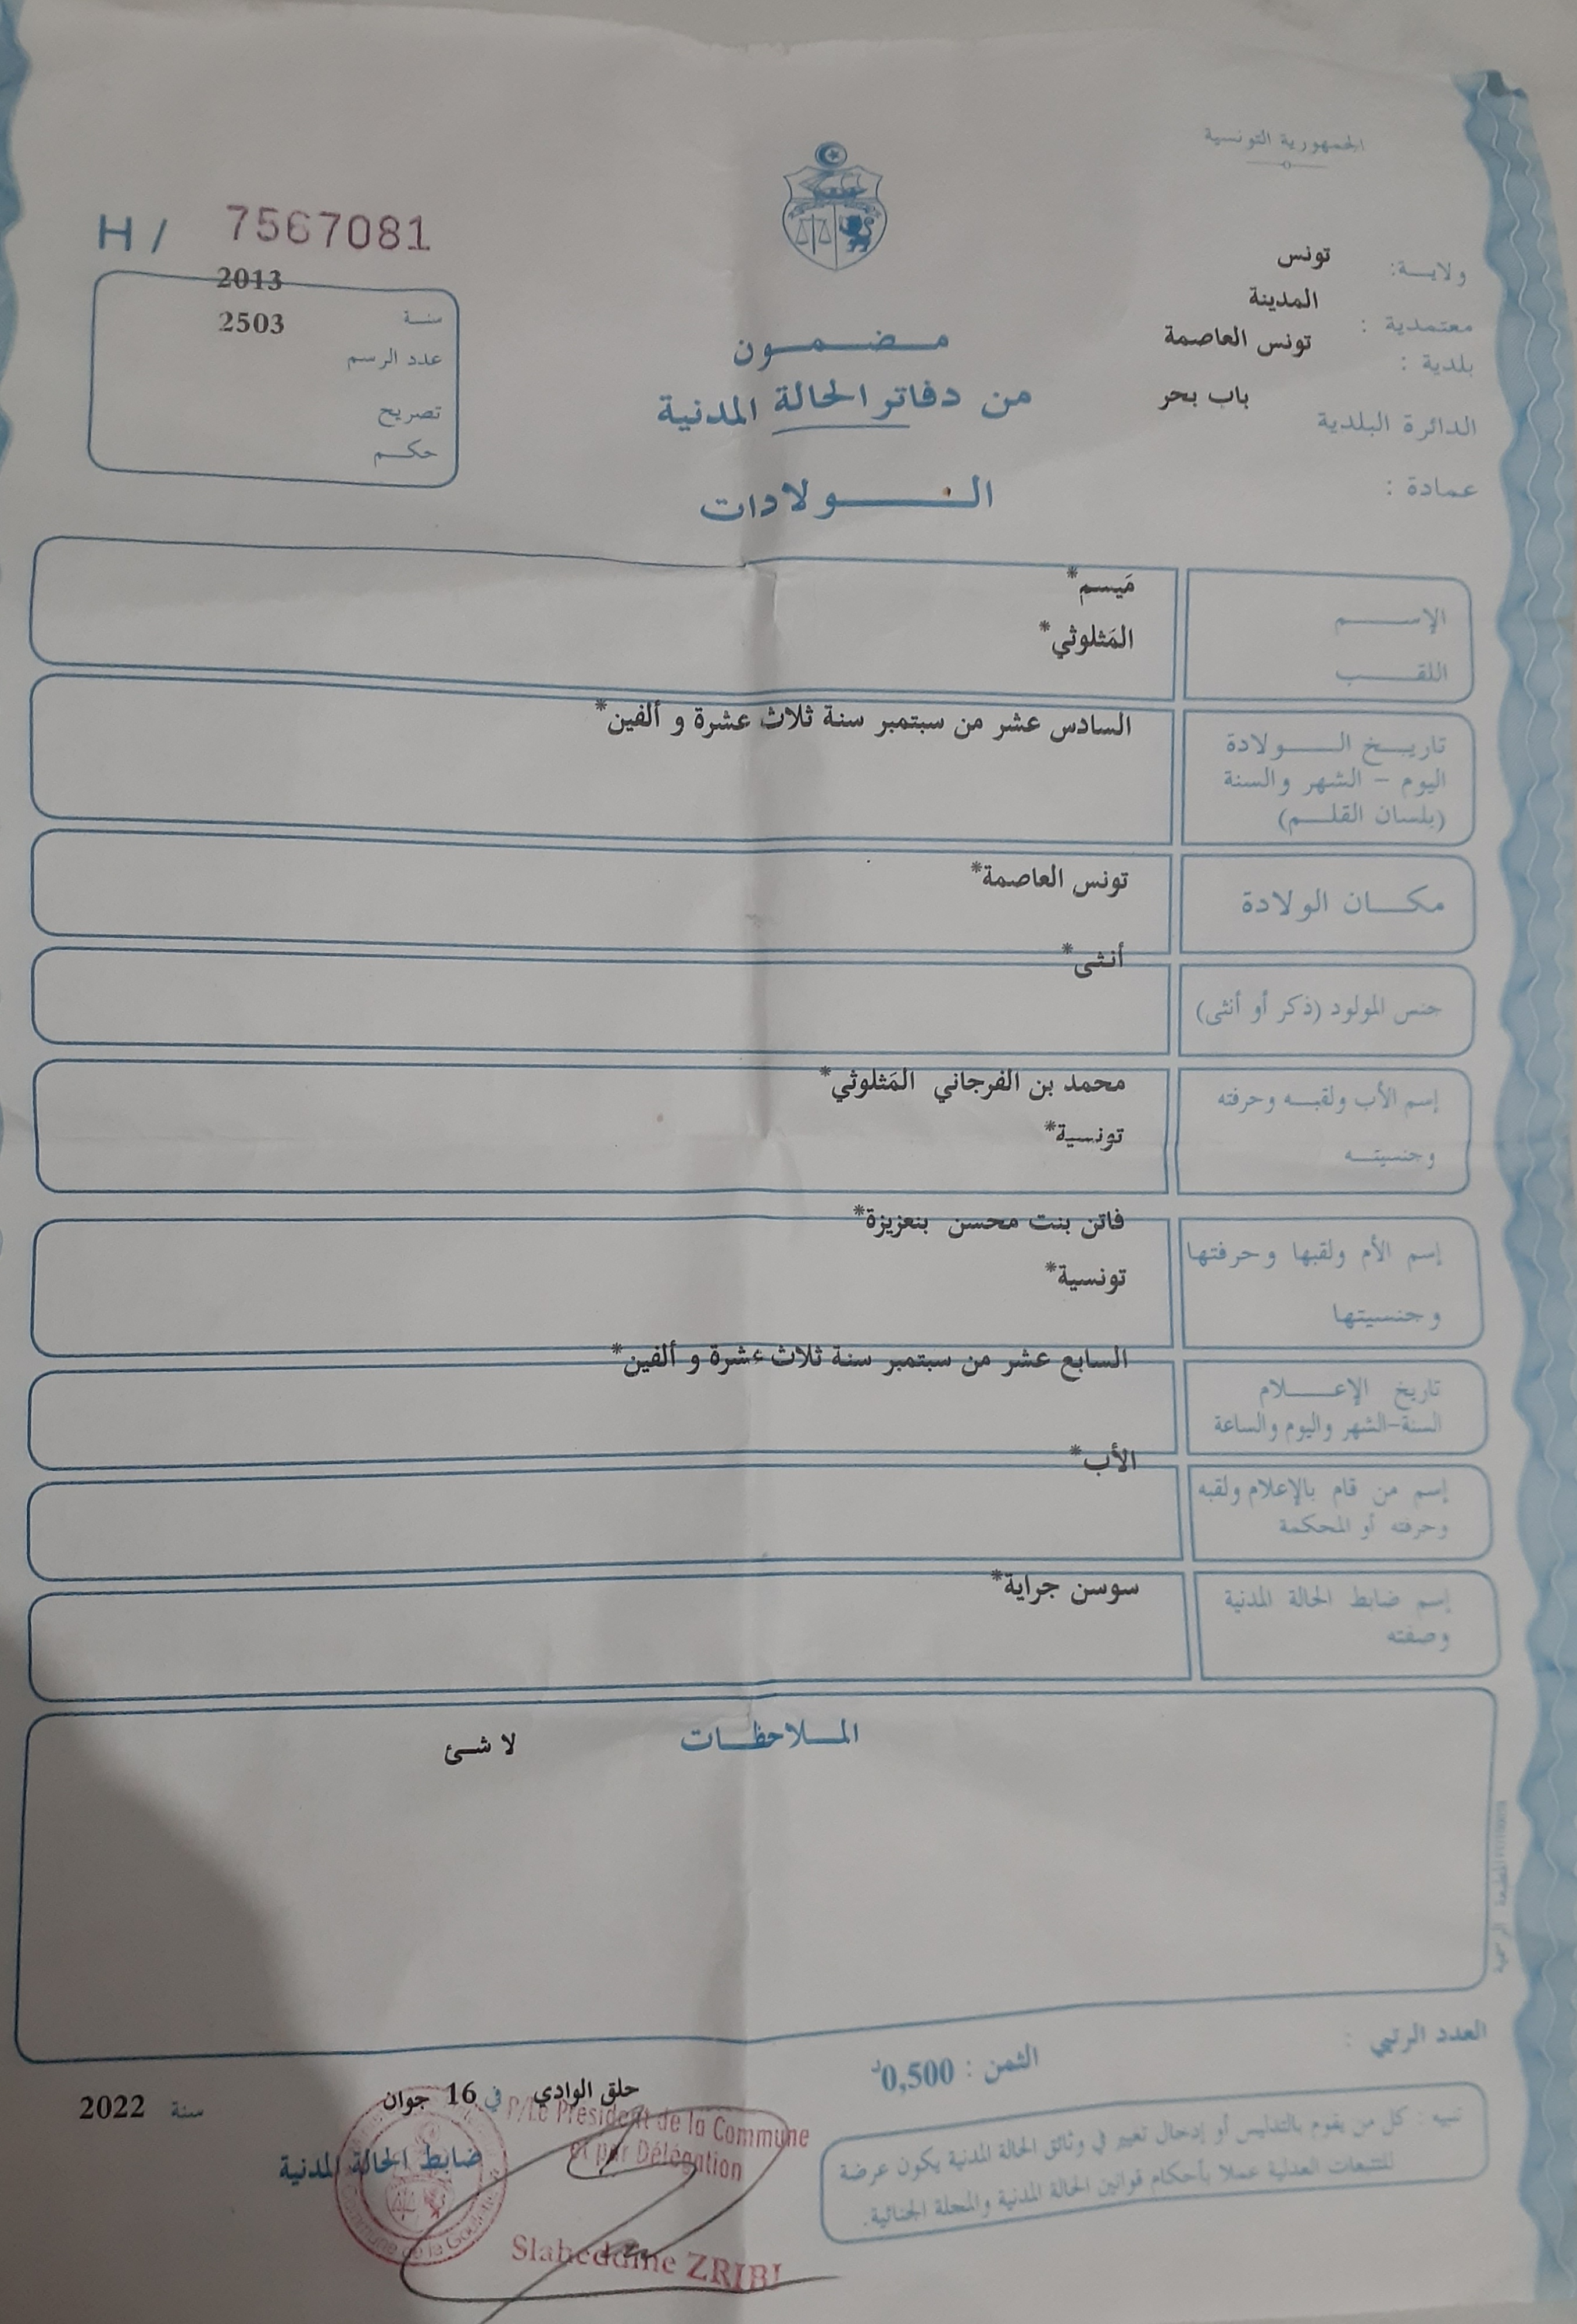 الجمهورية التونسية
H / 7567081
ولايـــة: تونس
معتمدية : المدينة
بلدية : تونس العاصمة
الدائرة البلدية باب بحر
عمادة :
2013
سنـــة
2503
عدد الرسم
تصريح
حكــم
مـــضـــمـــون
من دفاتر الحالة المدنية
الـــولادات
الإســــــم مَيسم*
اللقــــــب المَثلوثي*
السادس عشر من سبتمبر سنة ثلاث عشرة و ألفين*
تاريــخ الـــــولادة
اليوم – الشهر والسنة
(بلسان القلـــم)
مكــــان الولادة تونس العاصمة*
أنثى*
جنس المولود (ذكر أو أنثى)
إسم الأب ولقبــه وحرفته محمد بن الفرجاني المَثلوثي*
وجنسيتــه تونسية*
إسم الأم ولقبها وحرفتها فاتن بنت محسن بنعزيزة*
وجنسيتها تونسية*
السابع عشر من سبتمبر سنة ثلاث عشرة و ألفين*
تاريخ الإعـــــلام
السنة-الشهر واليوم والساعة
الأب*
إسم من قام بالإعلام ولقبه
وحرفته أو المحكمة
إسم ضابط الحالة المدنية سوسن جراية*
وصفته
المــلاحظــات
لا شئ
العدد الرتبي :
الثمن : 0,500د
حلق الوادي في 16 جوان سنة 2022
ضابط الحالة المدنية
P/Le Président de la Commune
et par Délégation
Slaheddine ZRIBI
Commune de la Goulette
تنبيه : كل من يقوم بالتدليس أو إدخال تغيير في وثائق الحالة المدنية يكون عرضة
للتتبعات العدلية عملا بأحكام قوانين الحالة المدنية والمجلة الجنائية.
المطبعة الرسمية